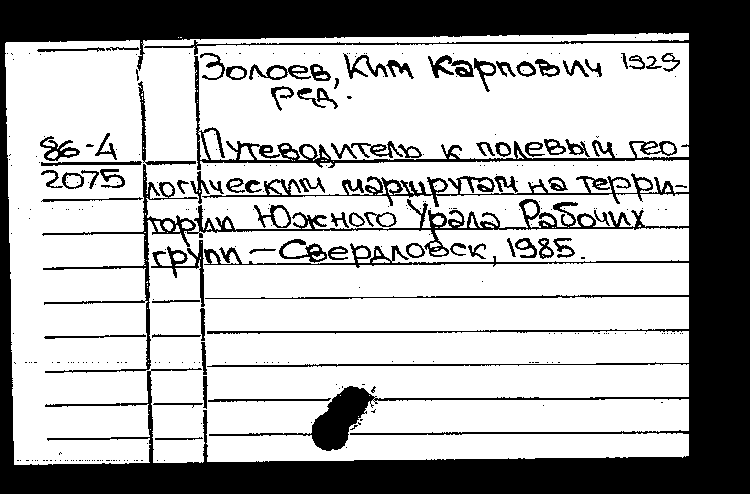 Золоев, Ким Карпович 1929
ред.
86-4 Путеводитель к полевым гео-
2075 логическим маршрутам на терри-
тории Южного Урала Рабочих
групп.-Свердловск, 1985.